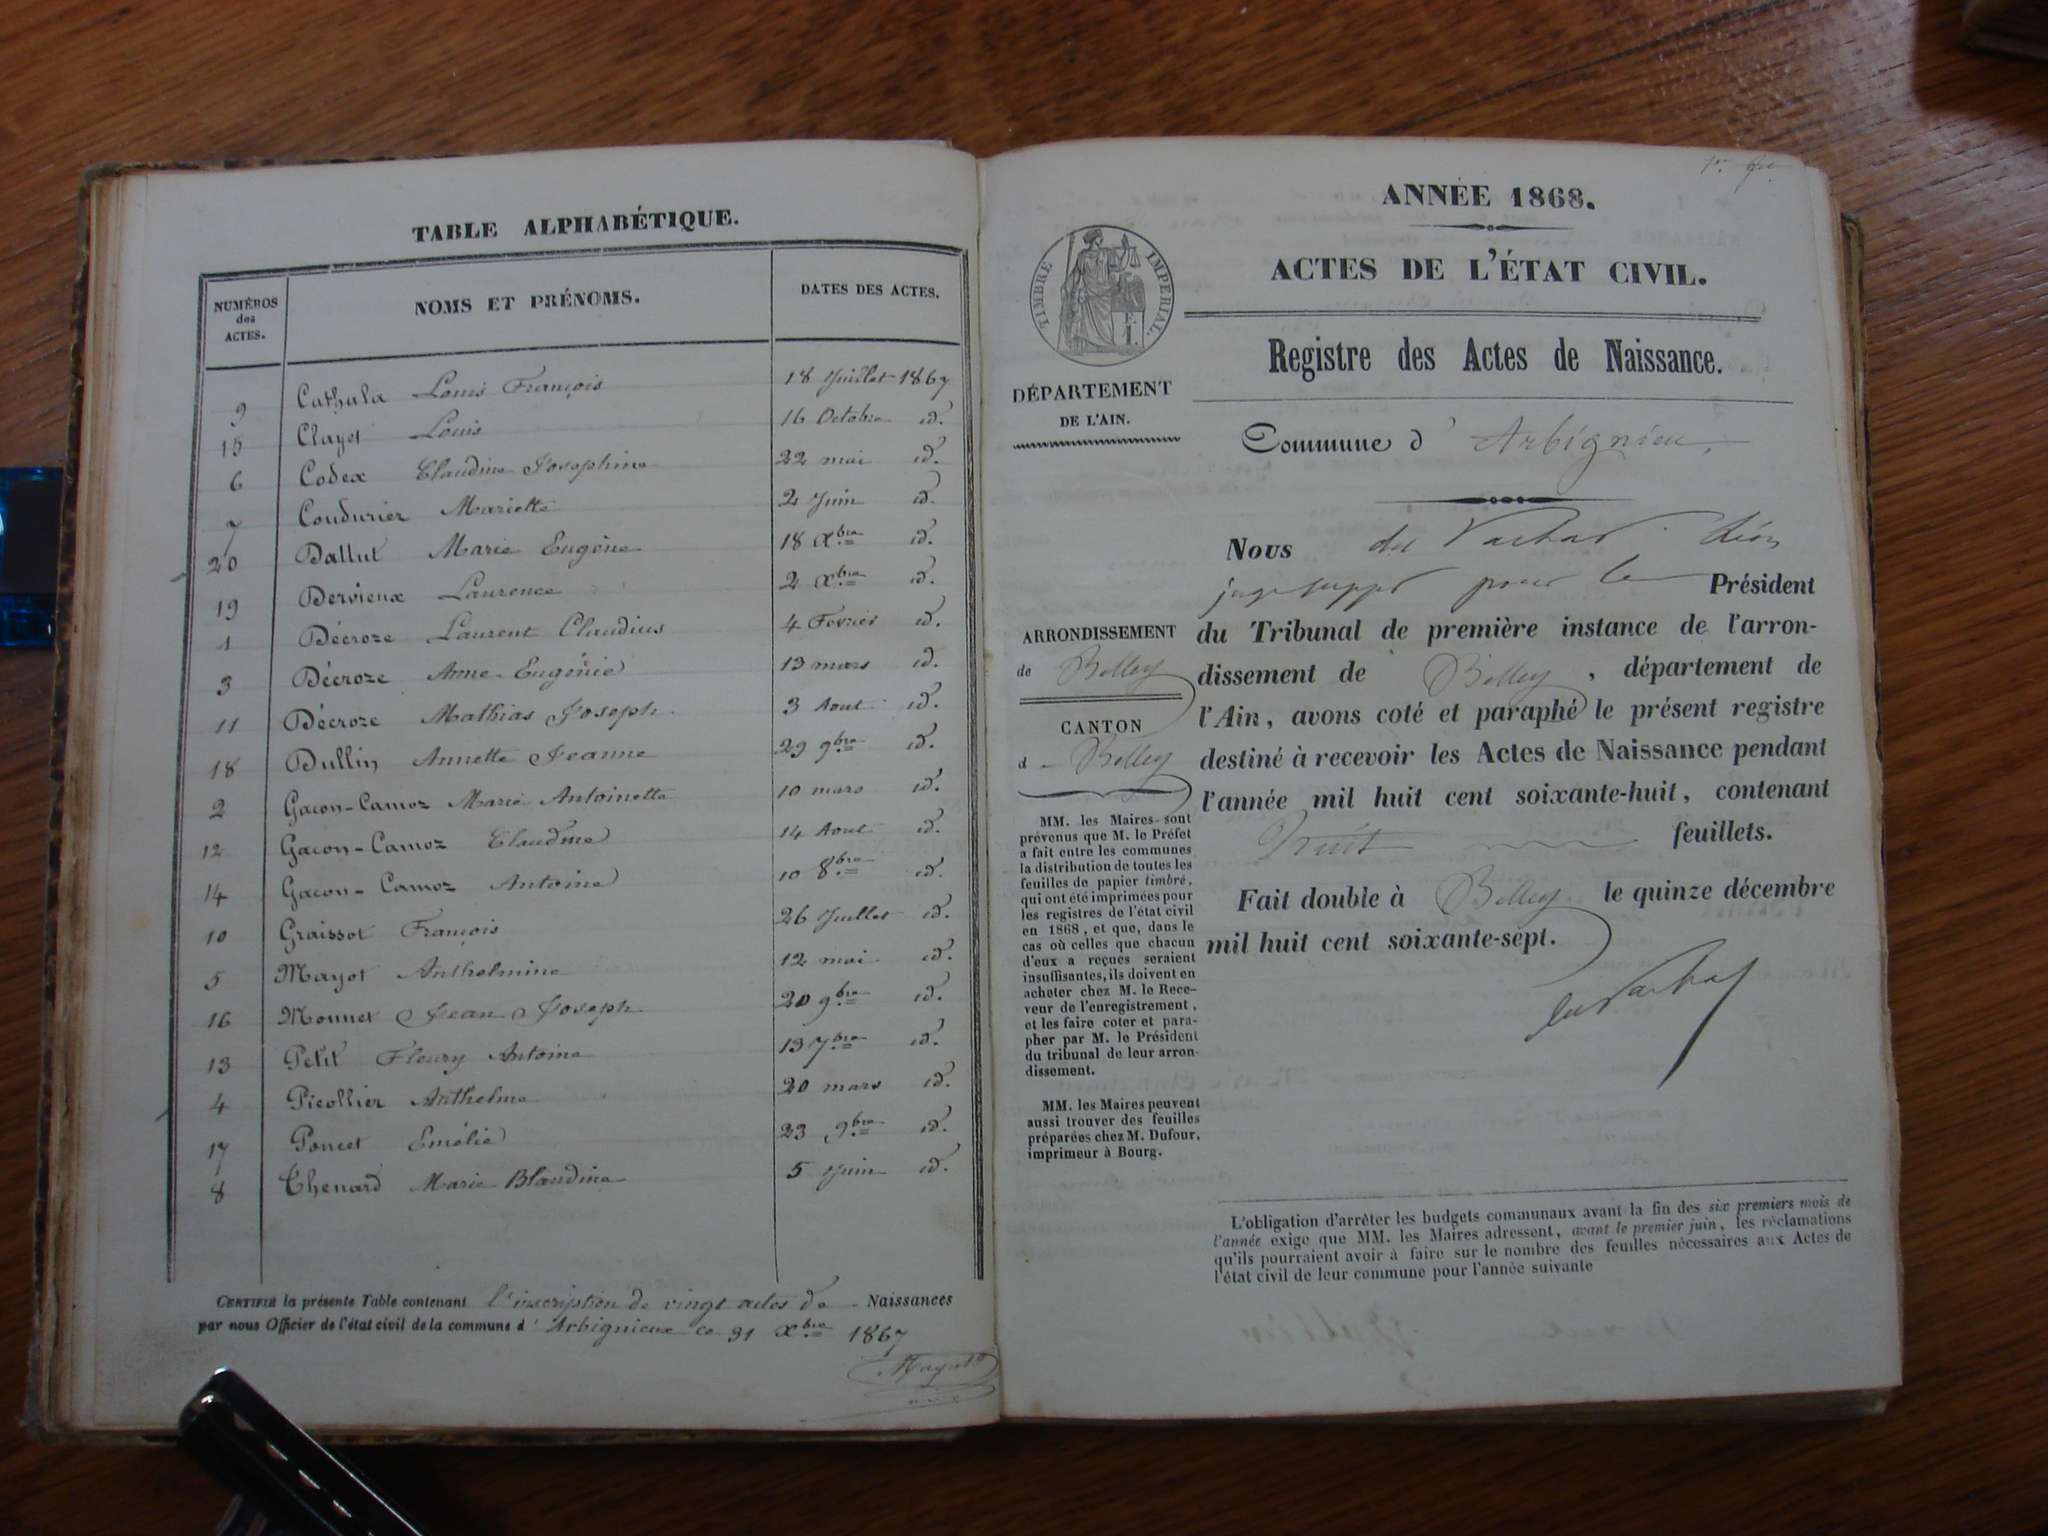 TABLE ALPHABÉTIQUE.
NUMÉROS des ACTES. NOMS ET PRÉNOMS. DATES DES ACTES.
9 Cathala Louis François 18 Juillet 1867
15 Clayet Louis 16 Octobre id.
6 Codex Claudine Josephine 22 mai id.
7 Coudurier Mariette 2 Juin id.
20 Dallut Marie Eugène 18 Xbre id.
19 Dervieux Laurence 2 Xbre id.
1 Décroze Laurent Claudius 4 Fevrier id.
3 Décroze Anne Eugénie 13 mars id.
11 Décroze Mathias Joseph 3 Aout id.
18 Dullin Annette Jeanne 29 9bre id.
2 Gacon-Camoz Marie Antoinette 10 mars id.
12 Gacon-Camoz Claudine 14 Aout id.
14 Gacon-Camoz Antoine 10 8bre id.
10 Graissot François 26 Juillet id.
5 Mayot Anthelmine 12 mai id.
16 Monnet Jean Joseph 20 9bre id.
13 Petit Fleury Antoine 13 7bre id.
4 Picollier Anthelme 20 mars id.
17 Poncet Emélie 23 9bre id.
8 Thenard Marie Blandine 5 Juin id.
CERTIFIÉ la présente Table contenant l'inscription de vingt actes de Naissances
par nous Officier de l'état civil de la commune d'Arbignieux ce 31 Xbre 1867
Mayot
ANNÉE 1868.
ACTES DE L'ÉTAT CIVIL.
TIMBRE IMPÉRIAL.
Registre des Actes de Naissance.
DÉPARTEMENT
DE L'AIN.
Commune d'Arbignieu,
ARRONDISSEMENT
de Belley
CANTON
d Belley
MM. les Maires sont
prévenus que M. le Préfet
a fait entre les communes
la distribution de toutes les
feuilles de papier timbré,
qui ont été imprimées pour
les registres de l'état civil
en 1868, et que, dans le
cas où celles que chacun
d'eux a reçues seraient
insuffisantes, ils doivent en
acheter chez M. le Rece-
veur de l'enregistrement,
et les faire coter et para-
pher par M. le Président
du tribunal de leur arron-
dissement.
MM. les Maires peuvent
aussi trouver des feuilles
préparées chez M. Dufour,
imprimeur à Bourg.
Nous du
juge suppt pour le Président
du Tribunal de première instance de l'arron-
dissement de Belley, département de
l'Ain, avons coté et paraphé le présent registre
destiné à recevoir les Actes de Naissance pendant
l'année mil huit cent soixante-huit, contenant
huit feuillets.
Fait double à Belley le quinze décembre
mil huit cent soixante-sept.
L'obligation d'arrêter les budgets communaux avant la fin des six premiers mois de
l'année exige que MM. les Maires adressent, avant le premier juin, les réclamations
qu'ils pourraient avoir à faire sur le nombre des feuilles nécessaires aux Actes de
l'état civil de leur commune pour l'année suivante